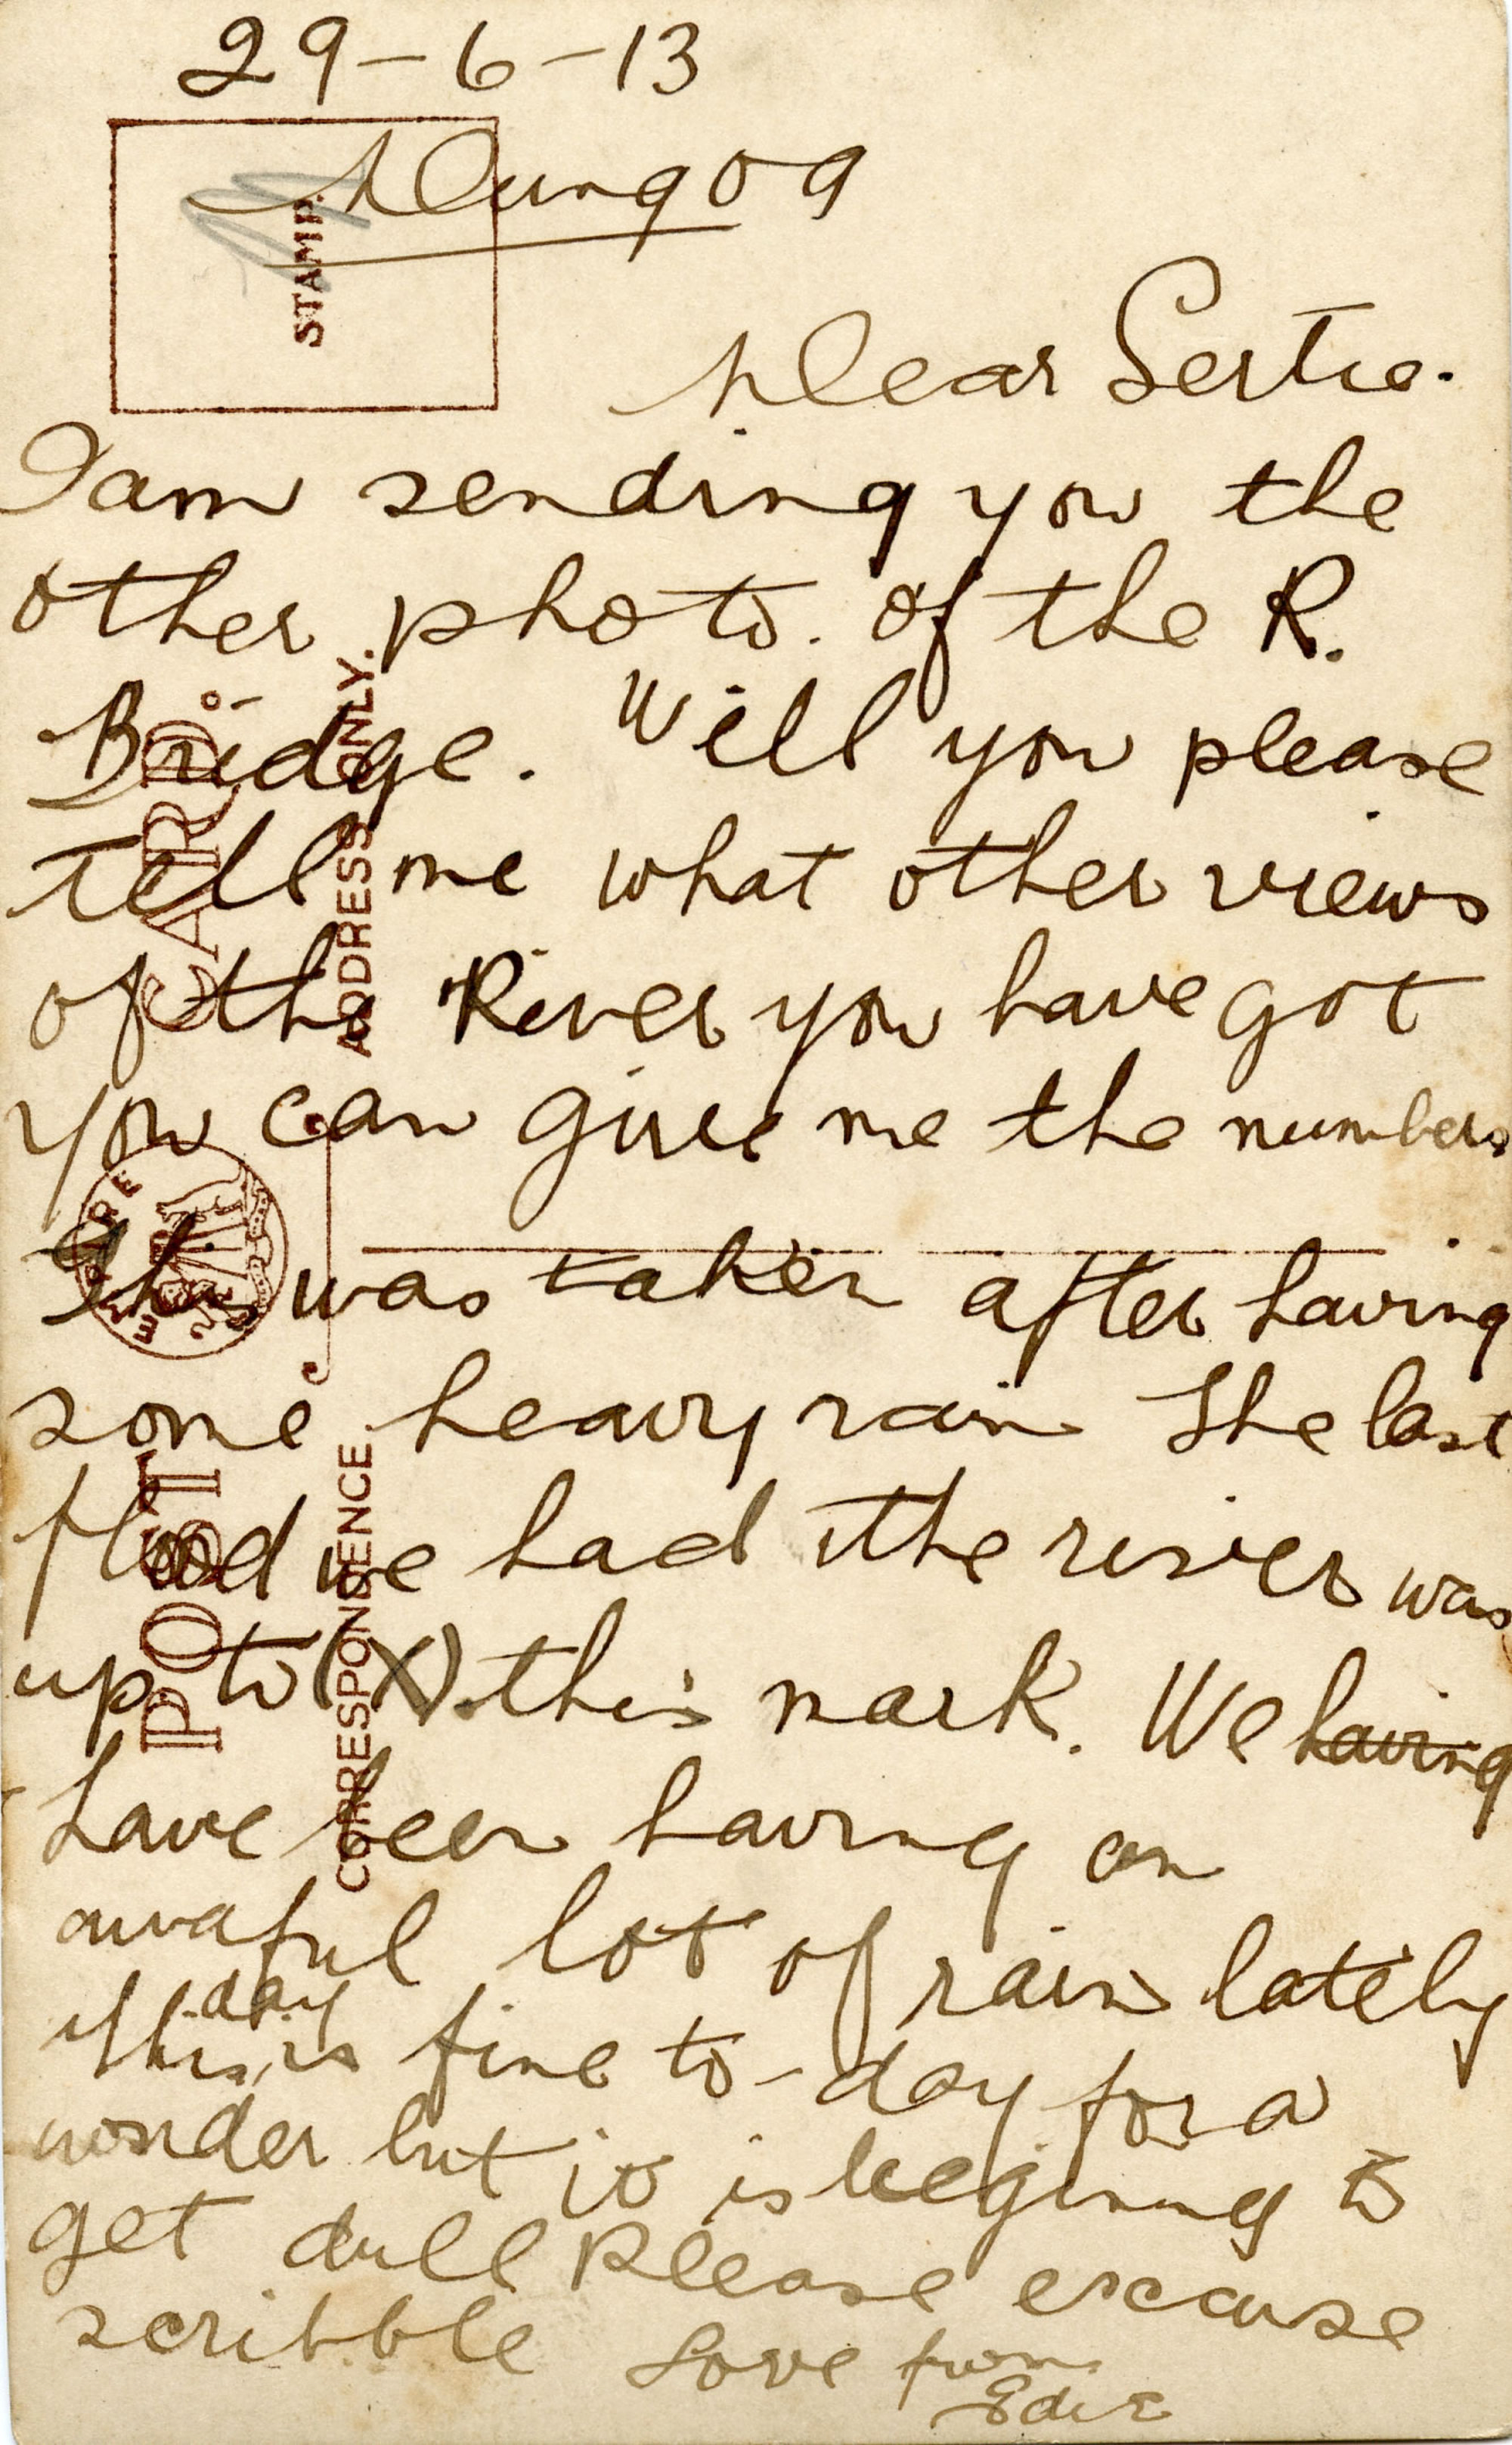 29-6-13
Dungog
Dear Gertie.
I am sending you the
other photo. of the R.
Bridge. Will you please
tell me what other views
of the River you have got
you can give me the numbers
This was taken after having
some heavy rain The last
flood we had the river was
up to (X) this mark. We having
have been having an
awaful lot of rain lately
This day is fine to-day for a
wonder but it is begining to
get dull Please excuse
scribble Love from
Edie
STAMP.
POST CARD.
CORRESPONDENCE.
ADDRESS ONLY.
EMPIRE